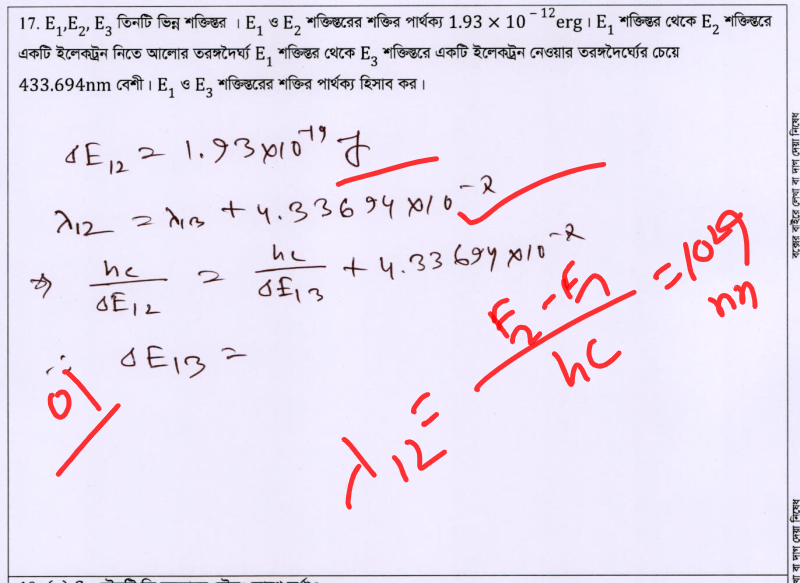 17. E₁,E₂, E₃ তিনটি ভিন্ন শক্তিস্তর । E₁ ও E₂ শক্তিস্তরের শক্তির পার্থক্য 1.93 × 10⁻¹²erg। E₁ শক্তিস্তর থেকে E₂ শক্তিস্তরে
একটি ইলেকট্রন নিতে আলোর তরঙ্গদৈর্ঘ্য E₁ শক্তিস্তর থেকে E₃ শক্তিস্তরে একটি ইলেকট্রন নেওয়ার তরঙ্গদৈর্ঘ্যের চেয়ে
433.694nm বেশী। E₁ ও E₃ শক্তিস্তরের শক্তির পার্থক্য হিসাব কর।
ΔE₁₂ = 1.93×10⁻¹⁹ J
λ₁₂ = λ₁₃ + 4.33694×10⁻²
⇒ hc/ΔE₁₂ = hc/ΔE₁₃ + 4.33694×10⁻²
∴ ΔE₁₃ =
01
λ₁₂ = (E₂ - E₁)/hc = 1029 nm
বক্সের বাইরে লেখা বা দাগ দেয়া নিষেধ
বা দাগ দেয়া নিষেধ